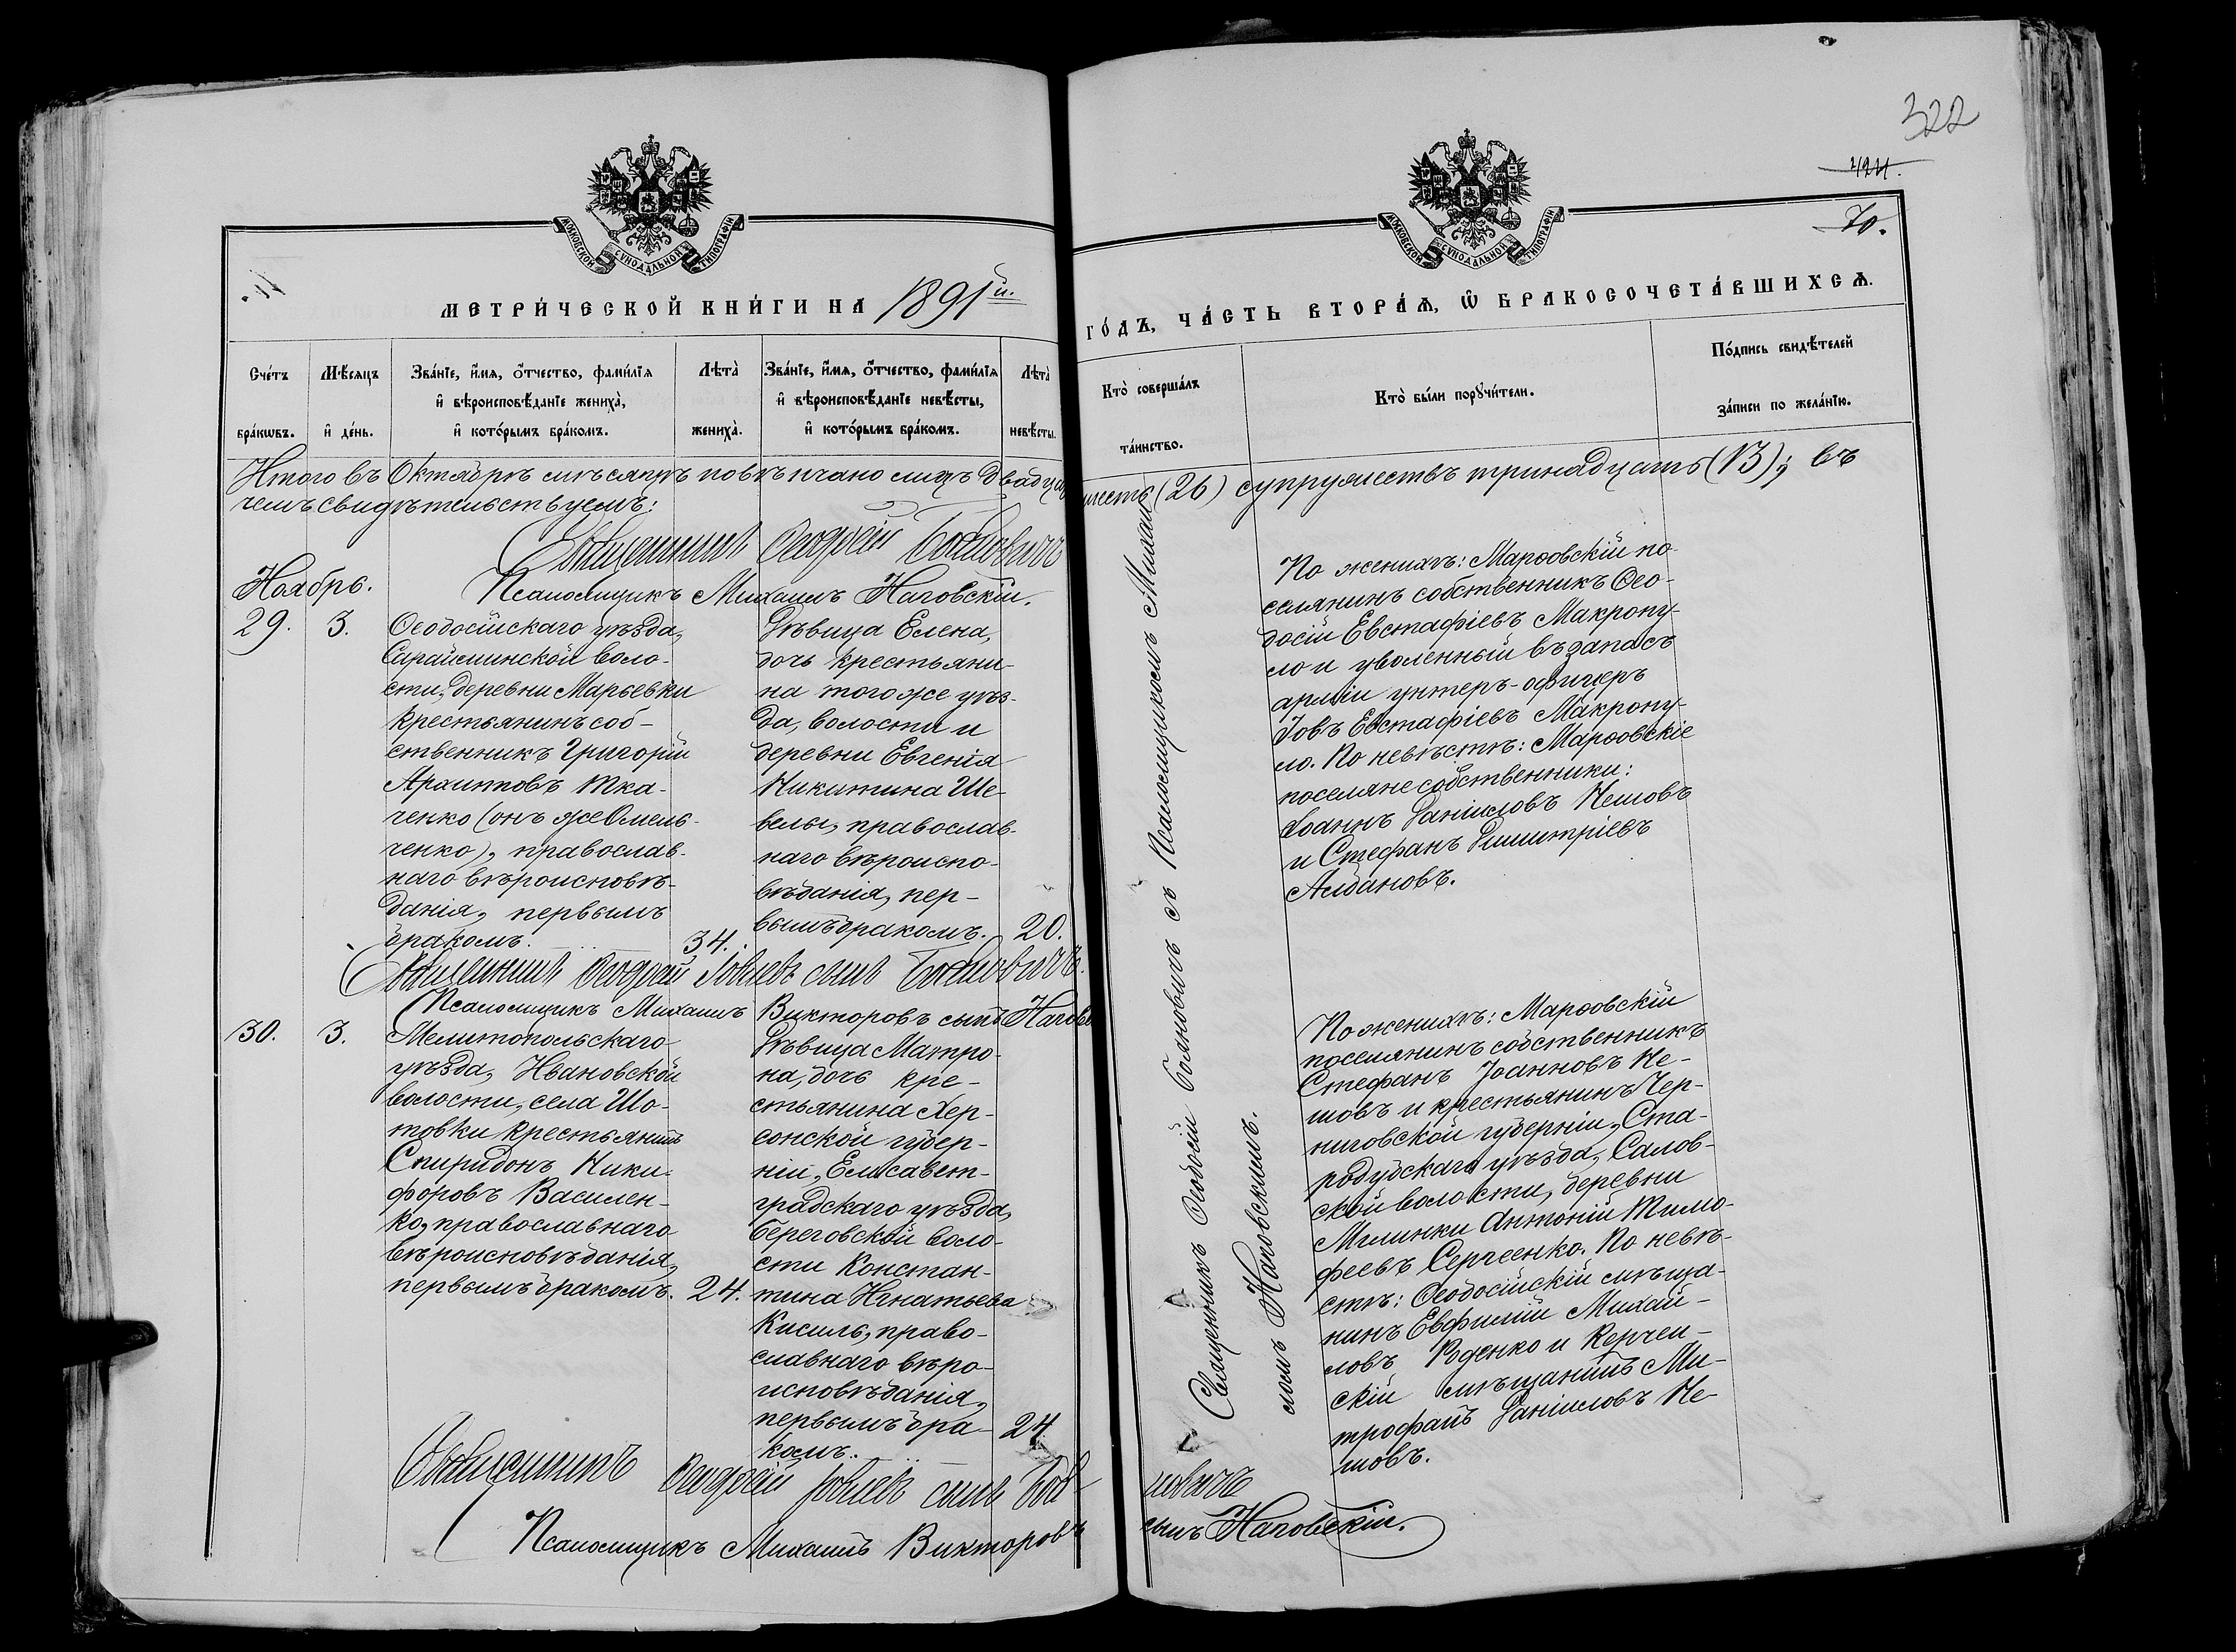 322
424.
70.
МОСКОВСКОЙ СѴНОДАЛЬНОЙ ТИПОГРАФІИ
МОСКОВСКОЙ СѴНОДАЛЬНОЙ ТИПОГРАФІИ
МЕТРИ́ЧЕСКОЙ КНИ́ГИ НА 1891й.
ГО́ДЪ, ЧА́СТЬ ВТОРА́Ѧ, Ѡ҆ БРАКОСОЧЕТА́ВШИХСѦ.
Сче́тъ
бра́кѡвъ.
Мѣ́сяцъ
и҆ де́нь.
Зва́нїе, и҆́мя, ѻ҆́тчество, фами́лїя
и҆ вѣроисповѣ́данїе жениха̀,
и҆ кото́рымъ бра́комъ.
Лѣта̀
жениха̀.
Зва́нїе, и҆́мя, ѻ҆́тчество, фами́лїя
и҆ вѣроисповѣ́данїе невѣ́сты,
и҆ кото́рымъ бра́комъ.
Лѣта̀
невѣ́сты.
Кто̀ соверша́лъ
та́инство.
Кто̀ бы́ли порꙋчи́тели.
По́дпись свидѣ́телей
за́писи по жела́нїю.
Итого въ Октябрѣ мѣсяцѣ повѣнчано лицъ двадцать шесть (26) супружествъ тринадцать (13); въ
чемъ свидѣтельствуемъ:
Священникъ Ѳеодосій Бояновичъ
Псаломщикъ Михаилъ Наговскій.
Ноябрь.
29.
3.
Ѳеодосійскаго уѣзда,
Сарайминской воло-
сти, деревни Марьевки
крестьянинъ соб-
ственникъ Григорій
Архиповъ Тка-
ченко (онъ же Омель-
ченко), православ-
наго вѣроисповѣ-
данія, первымъ
бракомъ.
34.
Дѣвица Елена,
дочь крестьяни-
на того же уѣз-
да, волости и
деревни Евгенія
Никитина Ше-
велы, православ-
наго вѣроиспо-
вѣданія, пер-
вымъ бракомъ.
20.
По женихѣ: Марѳовскій по-
селянинъ собственникъ Ѳео-
досій Евстафіевъ Макропу-
ло и уволенный въ запасъ
арміи унтеръ-офицеръ
Іовъ Евстафіевъ Макропу-
ло. По невѣстѣ: Марѳовскіе
поселяне собственники:
Іоаннъ Даніиловъ Пешовъ
и Стефанъ Димитріевъ
Албановъ.
Священникъ Ѳеодосій Іовлевъ сынъ Бояновичъ.
Псаломщикъ Михаилъ Викторовъ сынъ
30.
3.
Мелитопольскаго
уѣзда, Ивановской
волости, села Шо-
товки крестьянинъ
Спиридонъ Ники-
форовъ Василен-
ко, православнаго
вѣроисповѣданія,
первымъ бракомъ.
24.
Дѣвица Матро-
на, дочь кре-
стьянина Хер-
сонской губер-
ніи, Елисавет-
градскаго уѣзда,
Береговской воло-
сти Констан-
тина Игнатьева
Кисиль, право-
славнаго вѣро-
исповѣданія,
первымъ бра-
комъ.
24
По женихѣ: Марѳовскій
поселянинъ собственникъ
Стефанъ Іоанновъ Пе-
шовъ и крестьянинъ Чер-
ниговской губерніи, Ста-
родубскаго уѣзда, Салов-
ской волости, деревни
Милинки Антоній Тимо-
феевъ Сергеенко. По невѣ-
стѣ: Ѳеодосійскій мѣща-
нинъ Евфимій Михай-
ловъ Роденко и Керчен-
скій мѣщанинъ Ми-
трофанъ Даніиловъ Пе-
шовъ.
Священникъ Ѳеодосій Бояновичъ съ Псаломщикомъ Михаи-
ломъ Наговскимъ.
Священникъ Ѳеодосій Іовлевъ сынъ Бояновичъ
Псаломщикъ Михаилъ Викторовъ сынъ Наговскій.